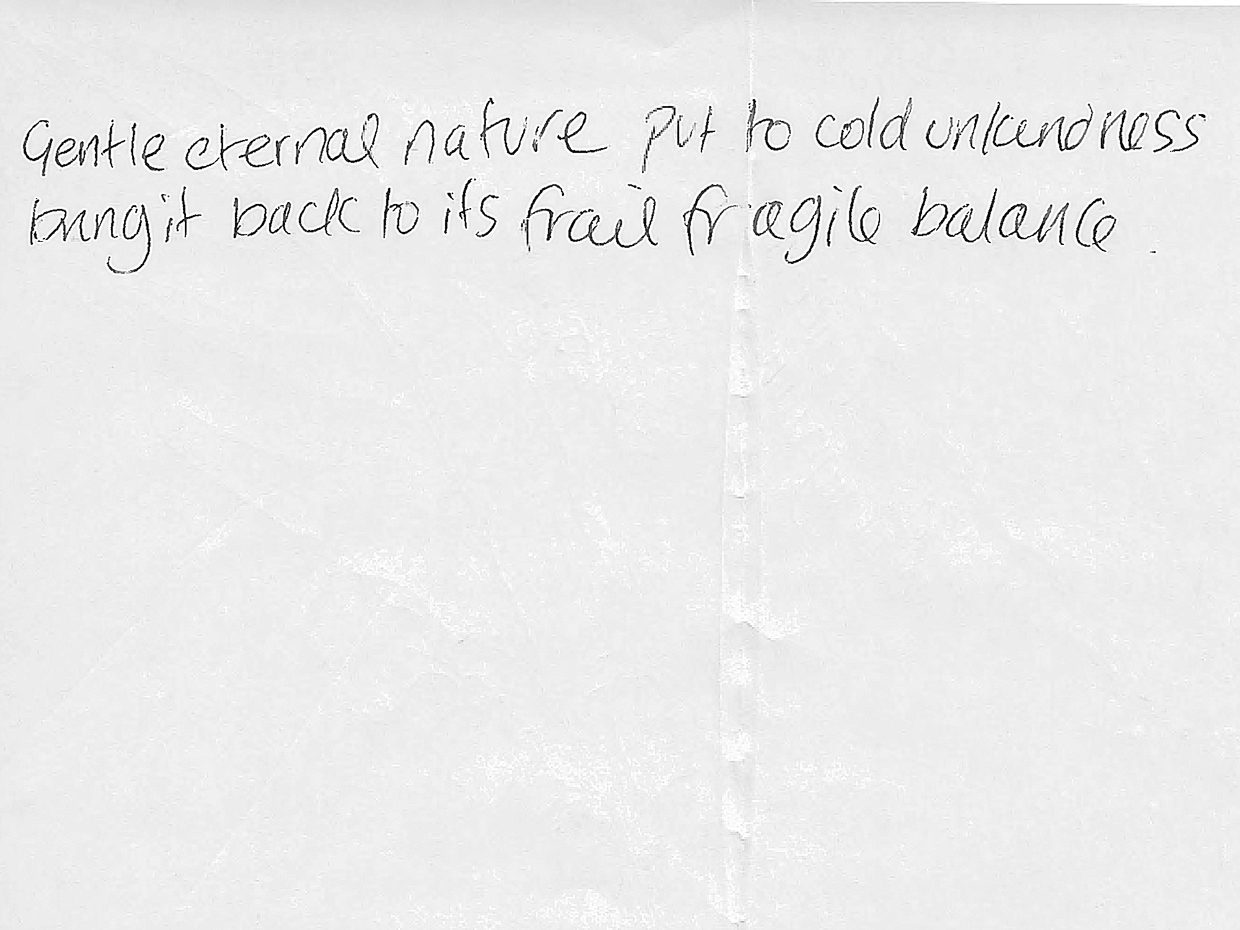 Gentle eternal nature put to cold unkindness
bring it back to its frail fragile balance.